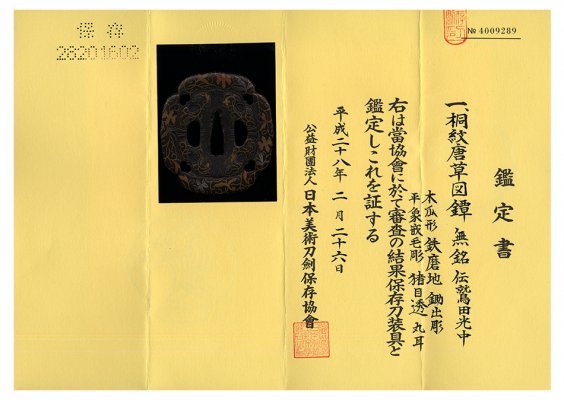 № 4009289
鑑定書
一、桐紋唐草図鐔 無銘 伝鷲田光中
木瓜形 鉄磨地 鋤出彫
平象嵌毛彫 猪目透 丸耳
右は當協會に於て審査の結果保存刀装具と
鑑定しこれを証する
平成二十八年 二月 二十六日
公益財團法人 日本美術刀劍保存協會
保存
28201602